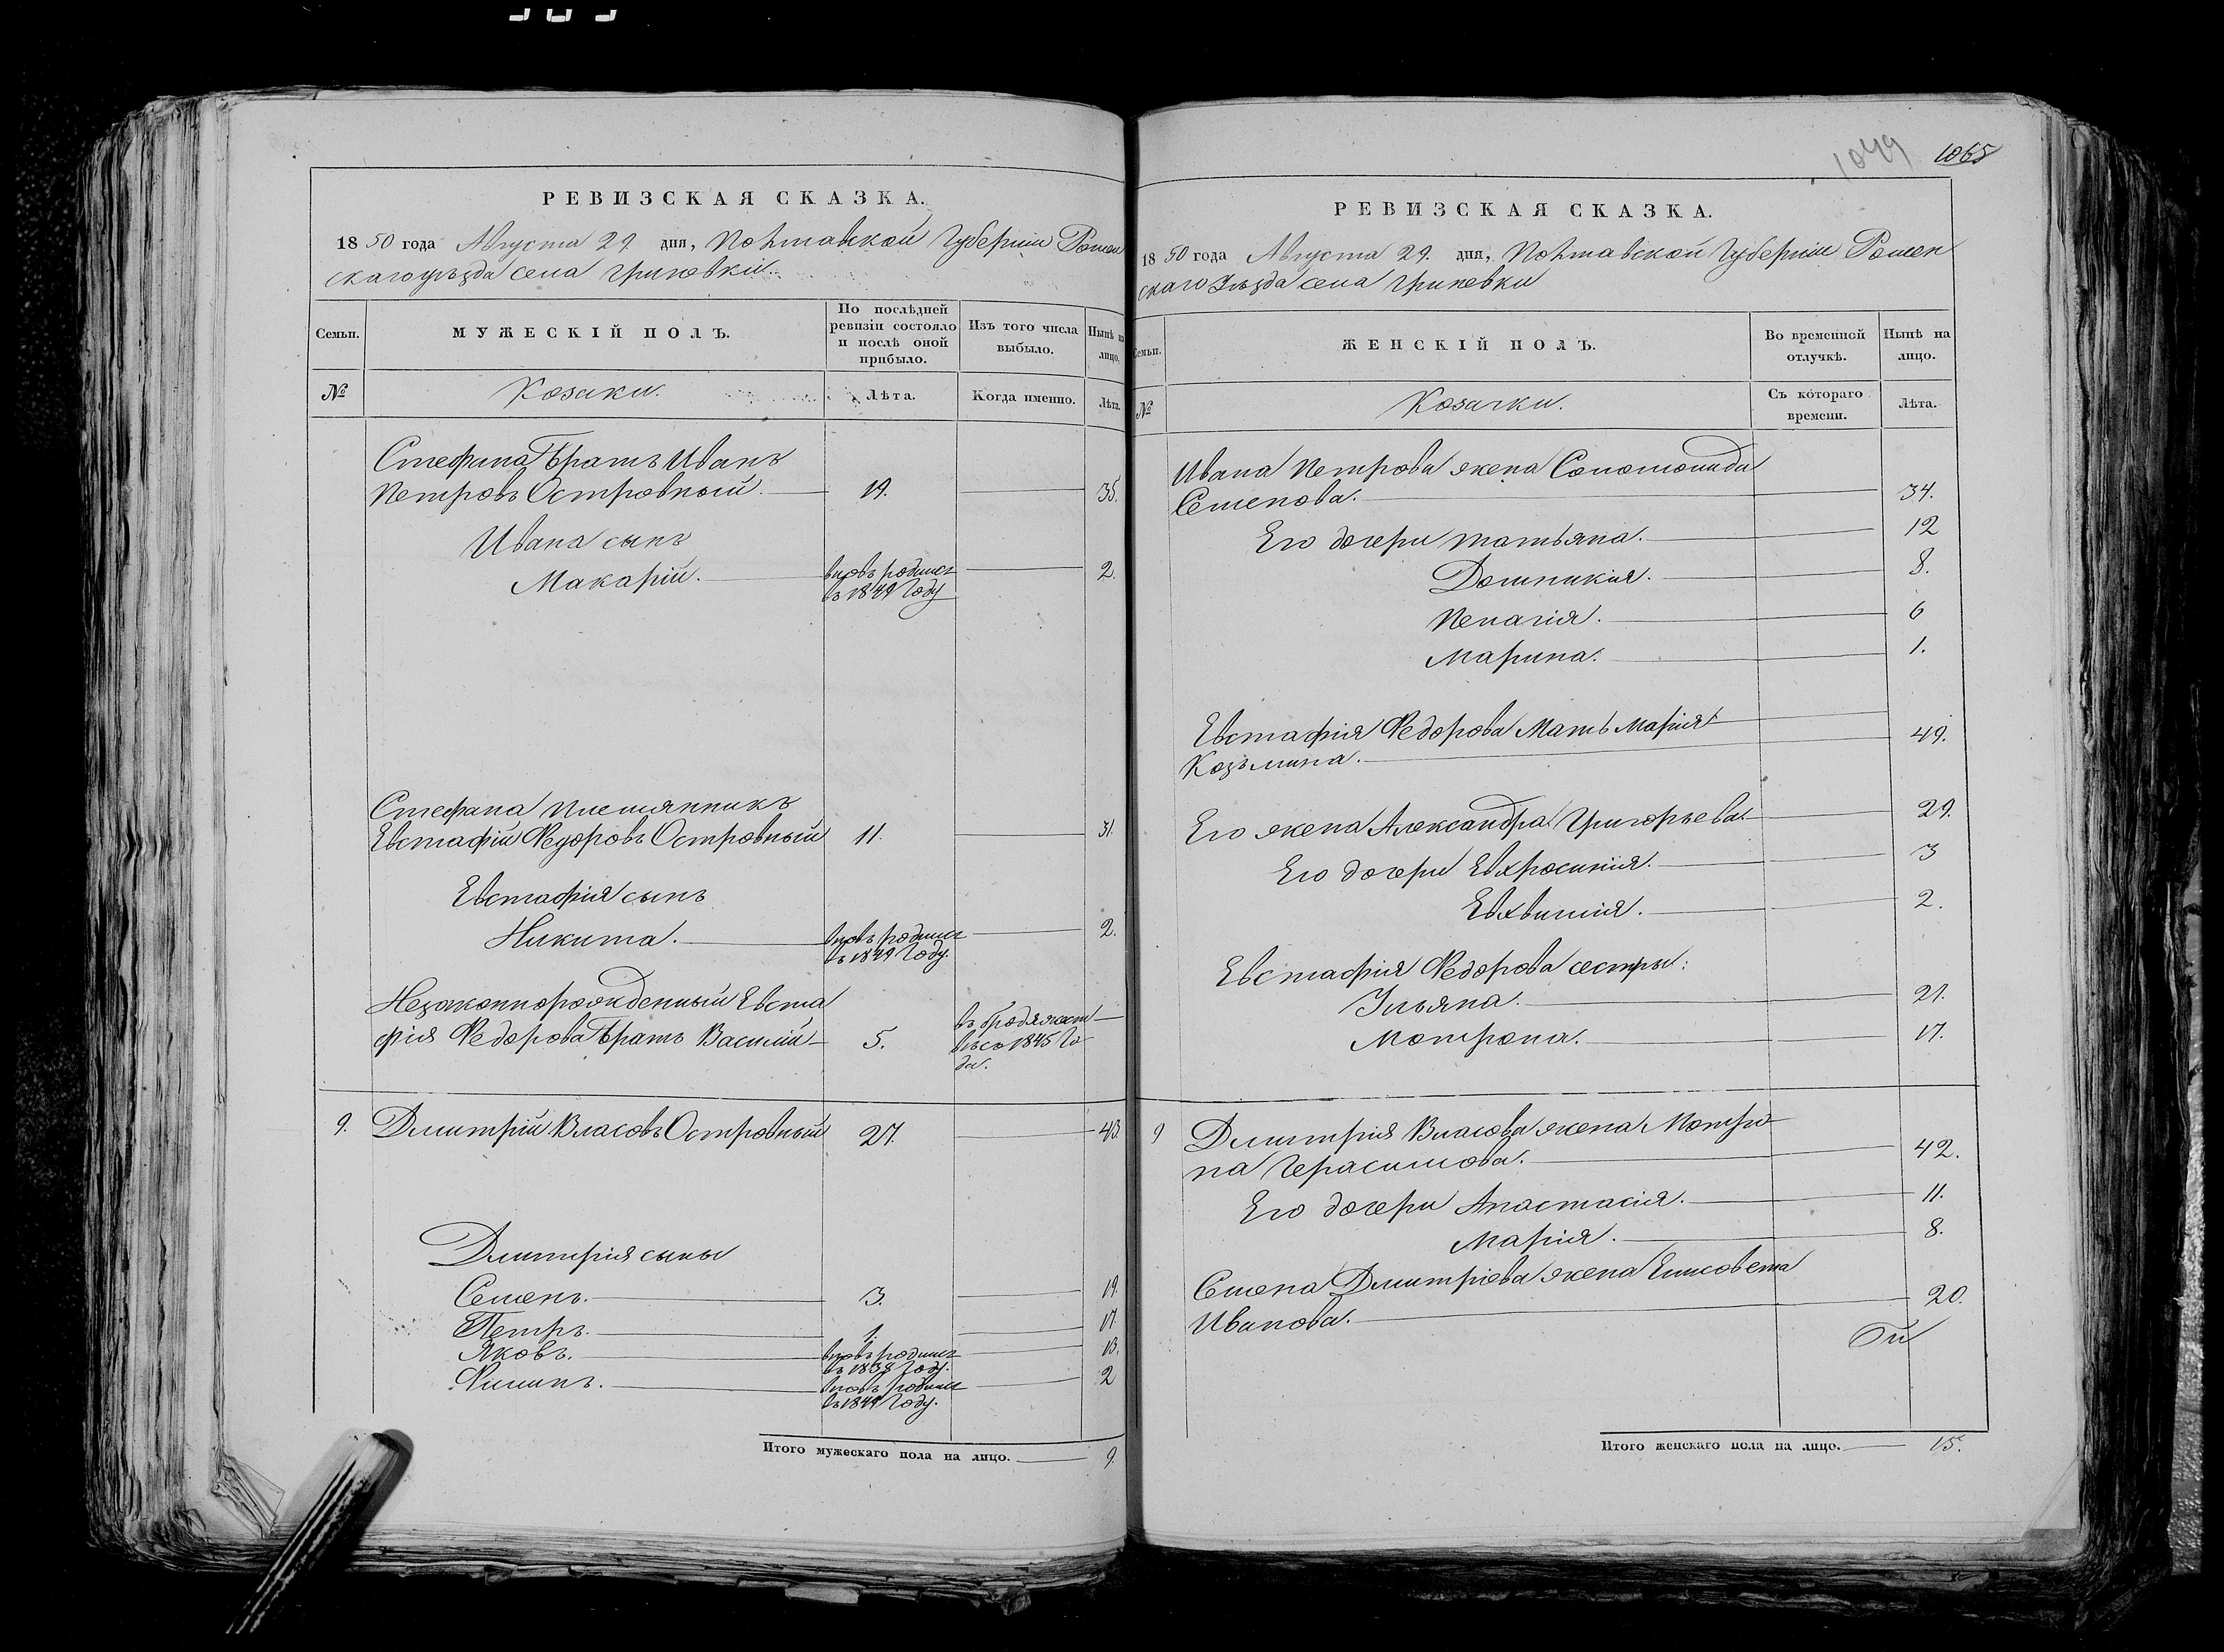 1049 1065
РЕВИЗСКАЯ СКАЗКА.
1850 года Августа 29. дня, Полтавской Губерніи Ромен
скаго уѣзда села Гриновки
Семьи.
МУЖЕСКІЙ ПОЛЪ.
По послѣдней ревизіи состояло и послѣ оной прибыло.
Изъ того числа выбыло.
Нынѣ на лицо.
№
Козаки.
Лѣта.
Когда именно.
Лѣта.
Стефана Братъ Иванъ
Петровъ Островный. 19. 35.
Ивана сынъ
Макарій. вновь родился 2.
въ 1849 Году
Стефана племянникъ
Евстафій Федоровъ Островный 11. 31.
Евстафія сынъ
Никита. вновь родился 2.
въ 1849 Году.
Незаконнорожденный Евста
фія Федорова Братъ Василий 5. въ бродяжест
вѣ съ 1845 Го
да.
9. Дмитрій Власовъ Островный 27. 43.
Дмитрія сыны
Семенъ. 3. 19.
Петръ. 1. 17.
Яковъ. вновь родился 13.
въ 1838 Году.
Филипъ. вновь родился 2
въ 1849 Году.
Итого мужескаго пола на лицо. 9.
РЕВИЗСКАЯ СКАЗКА.
1850 года Августа 29. дня, Полтавской Губерніи Ромен
скаго Уѣзда села Гриневки
Семьи.
ЖЕНСКІЙ ПОЛЪ.
Во временной отлучкѣ.
Нынѣ на лицо.
№
Козачки.
Съ котораго времени.
Лѣта.
Ивана Петрова жена Соломонида
Семенова. 34.
Его дочери Татьяна. 12
Домникия. 8.
Пелагія. 6
Марина. 1.
Евстафія Федорова Мать Марія
Козьмина. 49.
Его жена Александра Григорьева. 29.
Его дочери Евхросинія. 3
Евхвимія. 2.
Евстафія Федорова сестры:
Ульяна. 21.
Мотрона. 17.
9 Дмитрія Власова жена Мотро
на Герасимова. 42.
Его дочери Анастасія. 11.
Марія. 8.
Семена Дмитріева жена Елисовета
Иванова. 20.
Итого женскаго пола на лицо. 15.